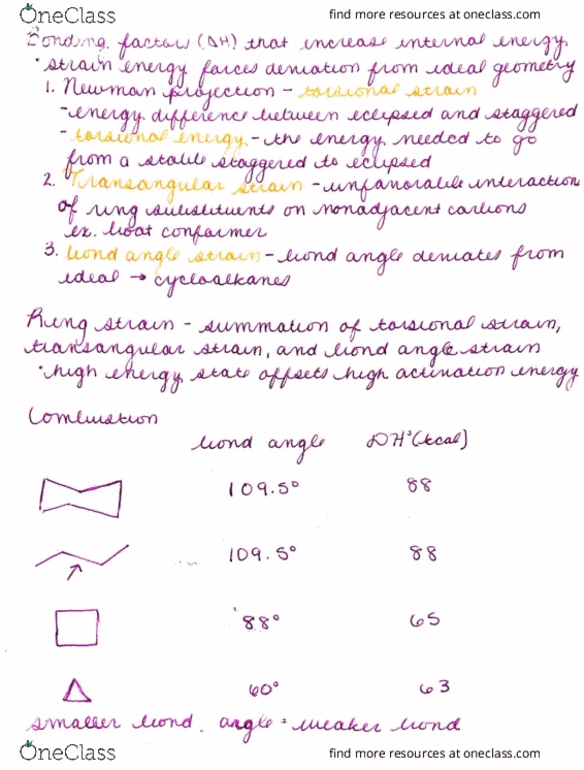 OneClass find more resources at oneclass.com
Bonding factors (ΔH) that increase internal energy
• strain energy forces deviation from ideal geometry
1. Newman projection - torsional strain
- energy difference between eclipsed and staggered
- torsional energy - the energy needed to go
from a stable staggered to eclipsed
2. Transangular strain - unfavorable interaction
of ring substituents on nonadjacent carbons
ex. boat conformer
3. bond angle strain - bond angle deviates from
ideal → cycloalkanes
Ring strain - summation of torsional strain,
transangular strain, and bond angle strain
• high energy state offsets high activation energy
Combustion
bond angle DH°(kcal)
109.5° 88
109.5° 88
88° 65
60° 63
smaller bond angle = weaker bond
OneClass find more resources at oneclass.com